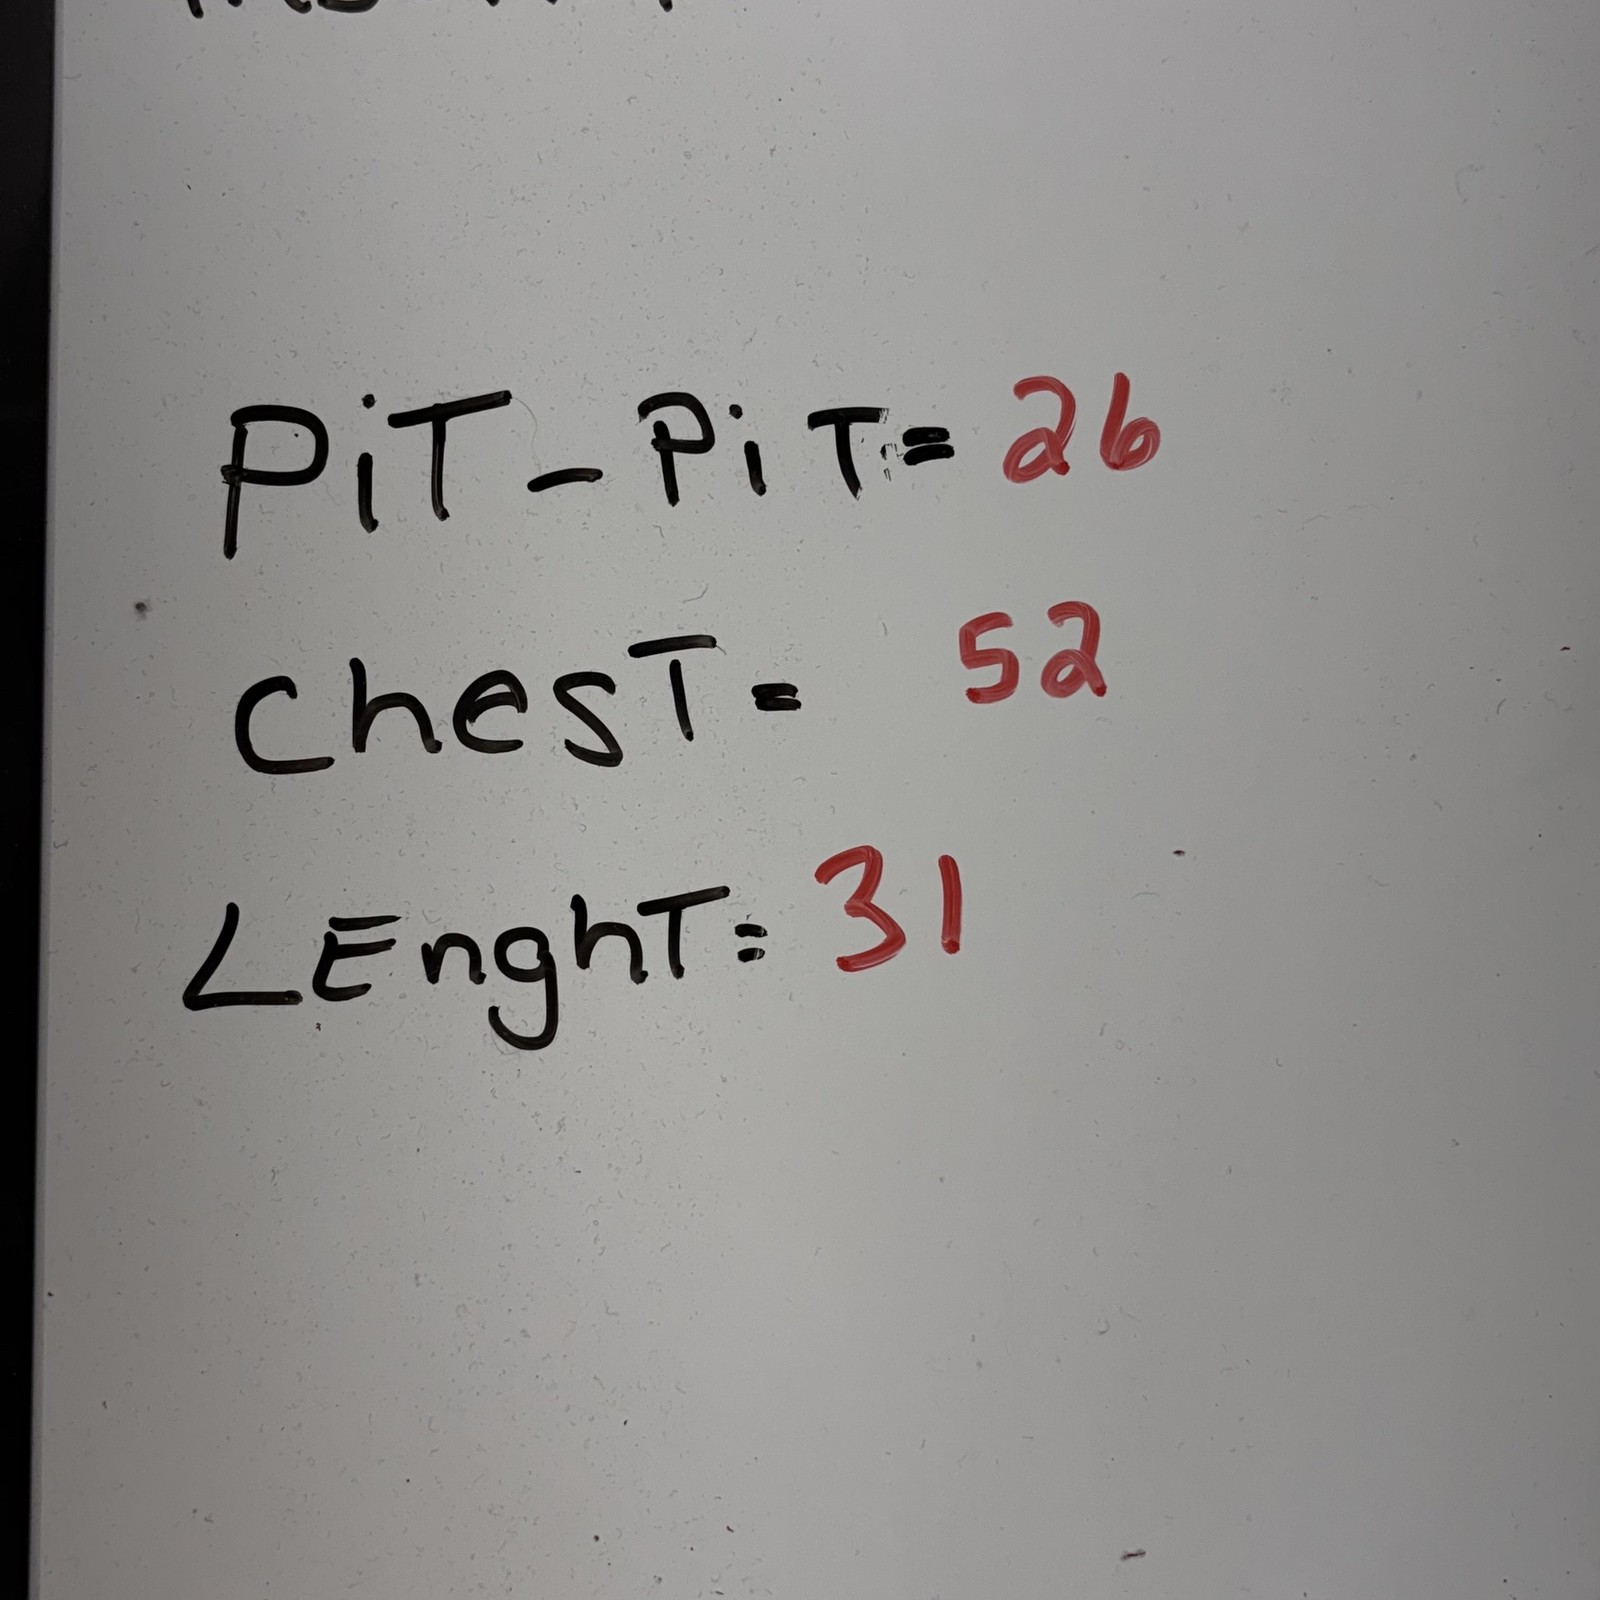 PiT - PiT = 26
chesT = 52
LEnghT = 31